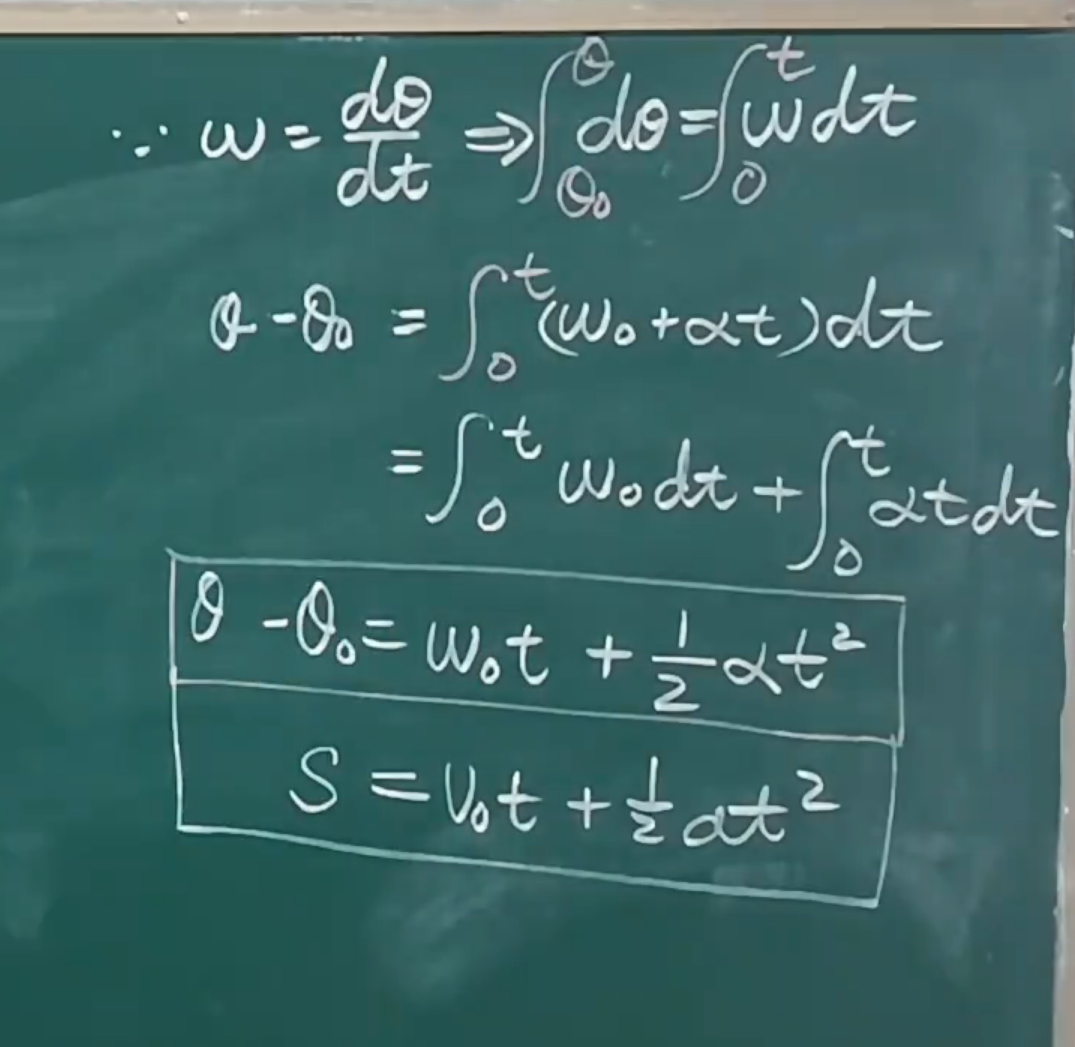 ∵ ω = dθ/dt ⇒ ∫_{θ₀}^{θ} dθ = ∫_{0}^{t} ω dt
θ - θ₀ = ∫_{0}^{t} (ω₀ + αt) dt
= ∫_{0}^{t} ω₀ dt + ∫_{0}^{t} αt dt
θ - θ₀ = ω₀t + 1/2 αt²
S = v₀t + 1/2 at²